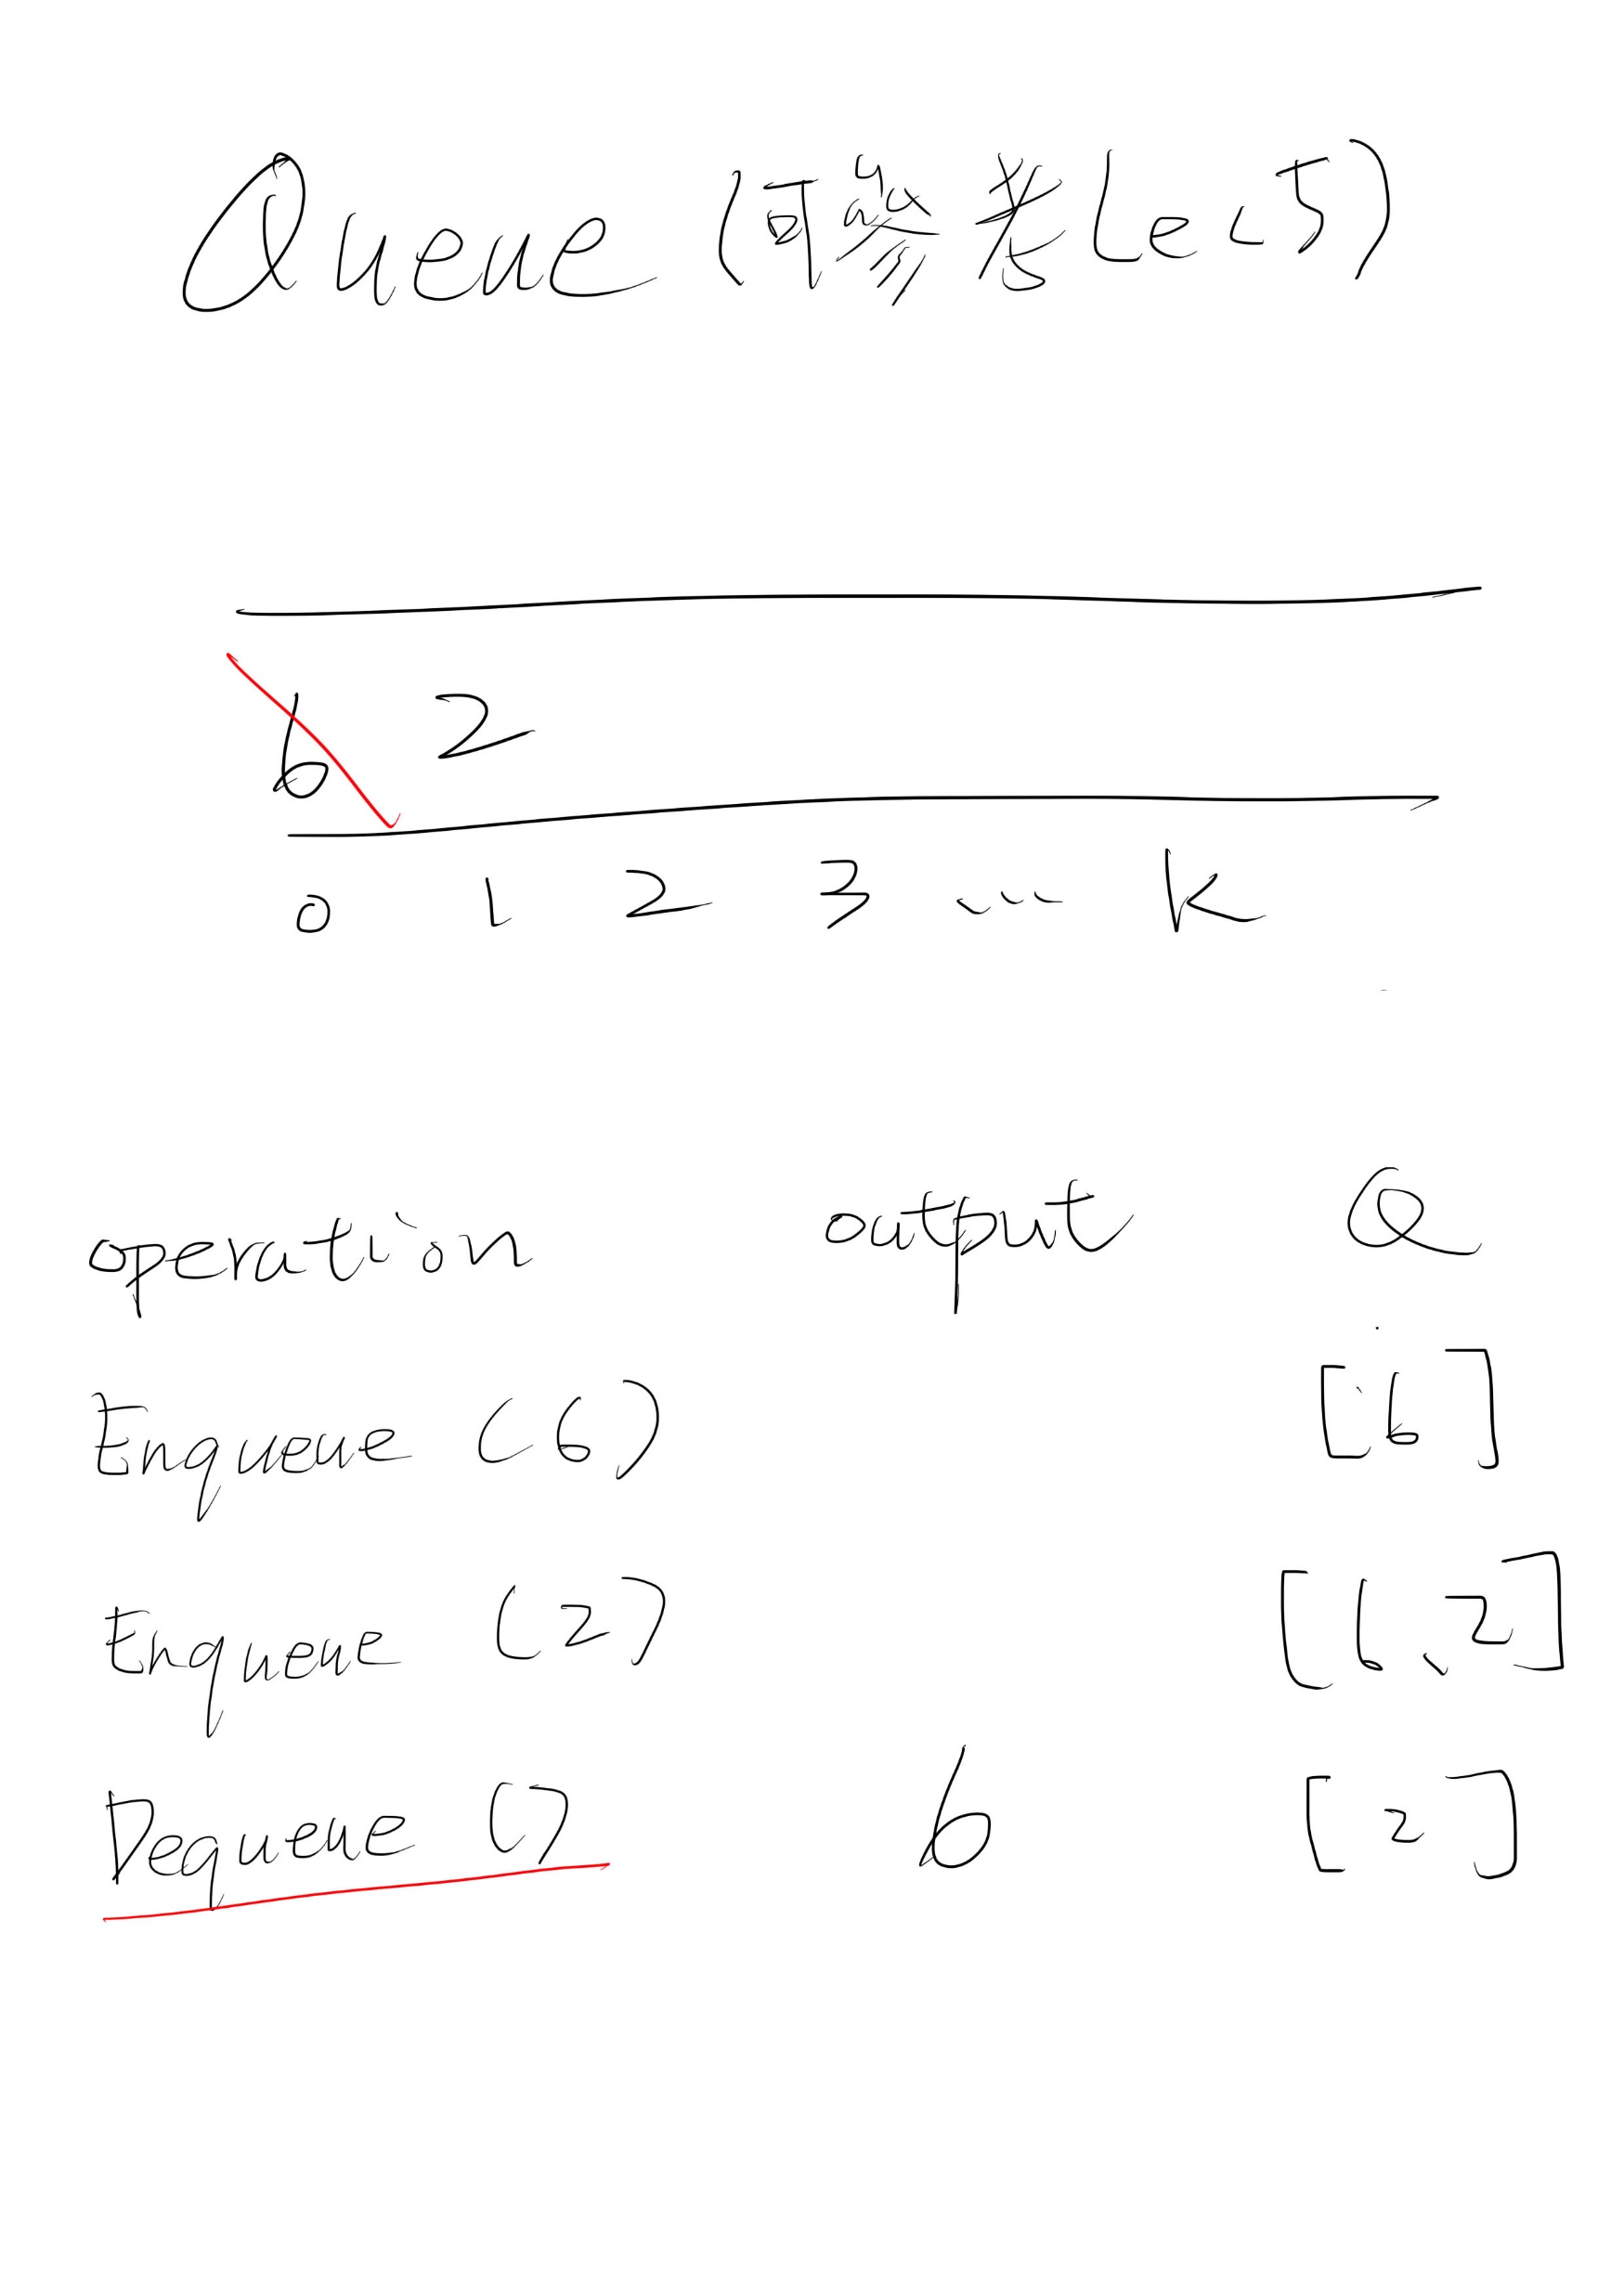 Queue (可参考Lec5)
6 2
0 1 2 3 ... k
operation output Q
Enqueue (6) [6]
Enqueue (2) [6,2]
Dequeue () 6 [2]